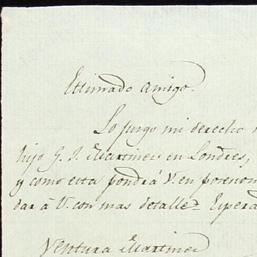 Estimado amigo.
Lo juzgo mi derecho
hijo G. J. Martinez en Londres,
y como esta pondrá V. en
dar á V. con mas detalles
Ventura Martinez